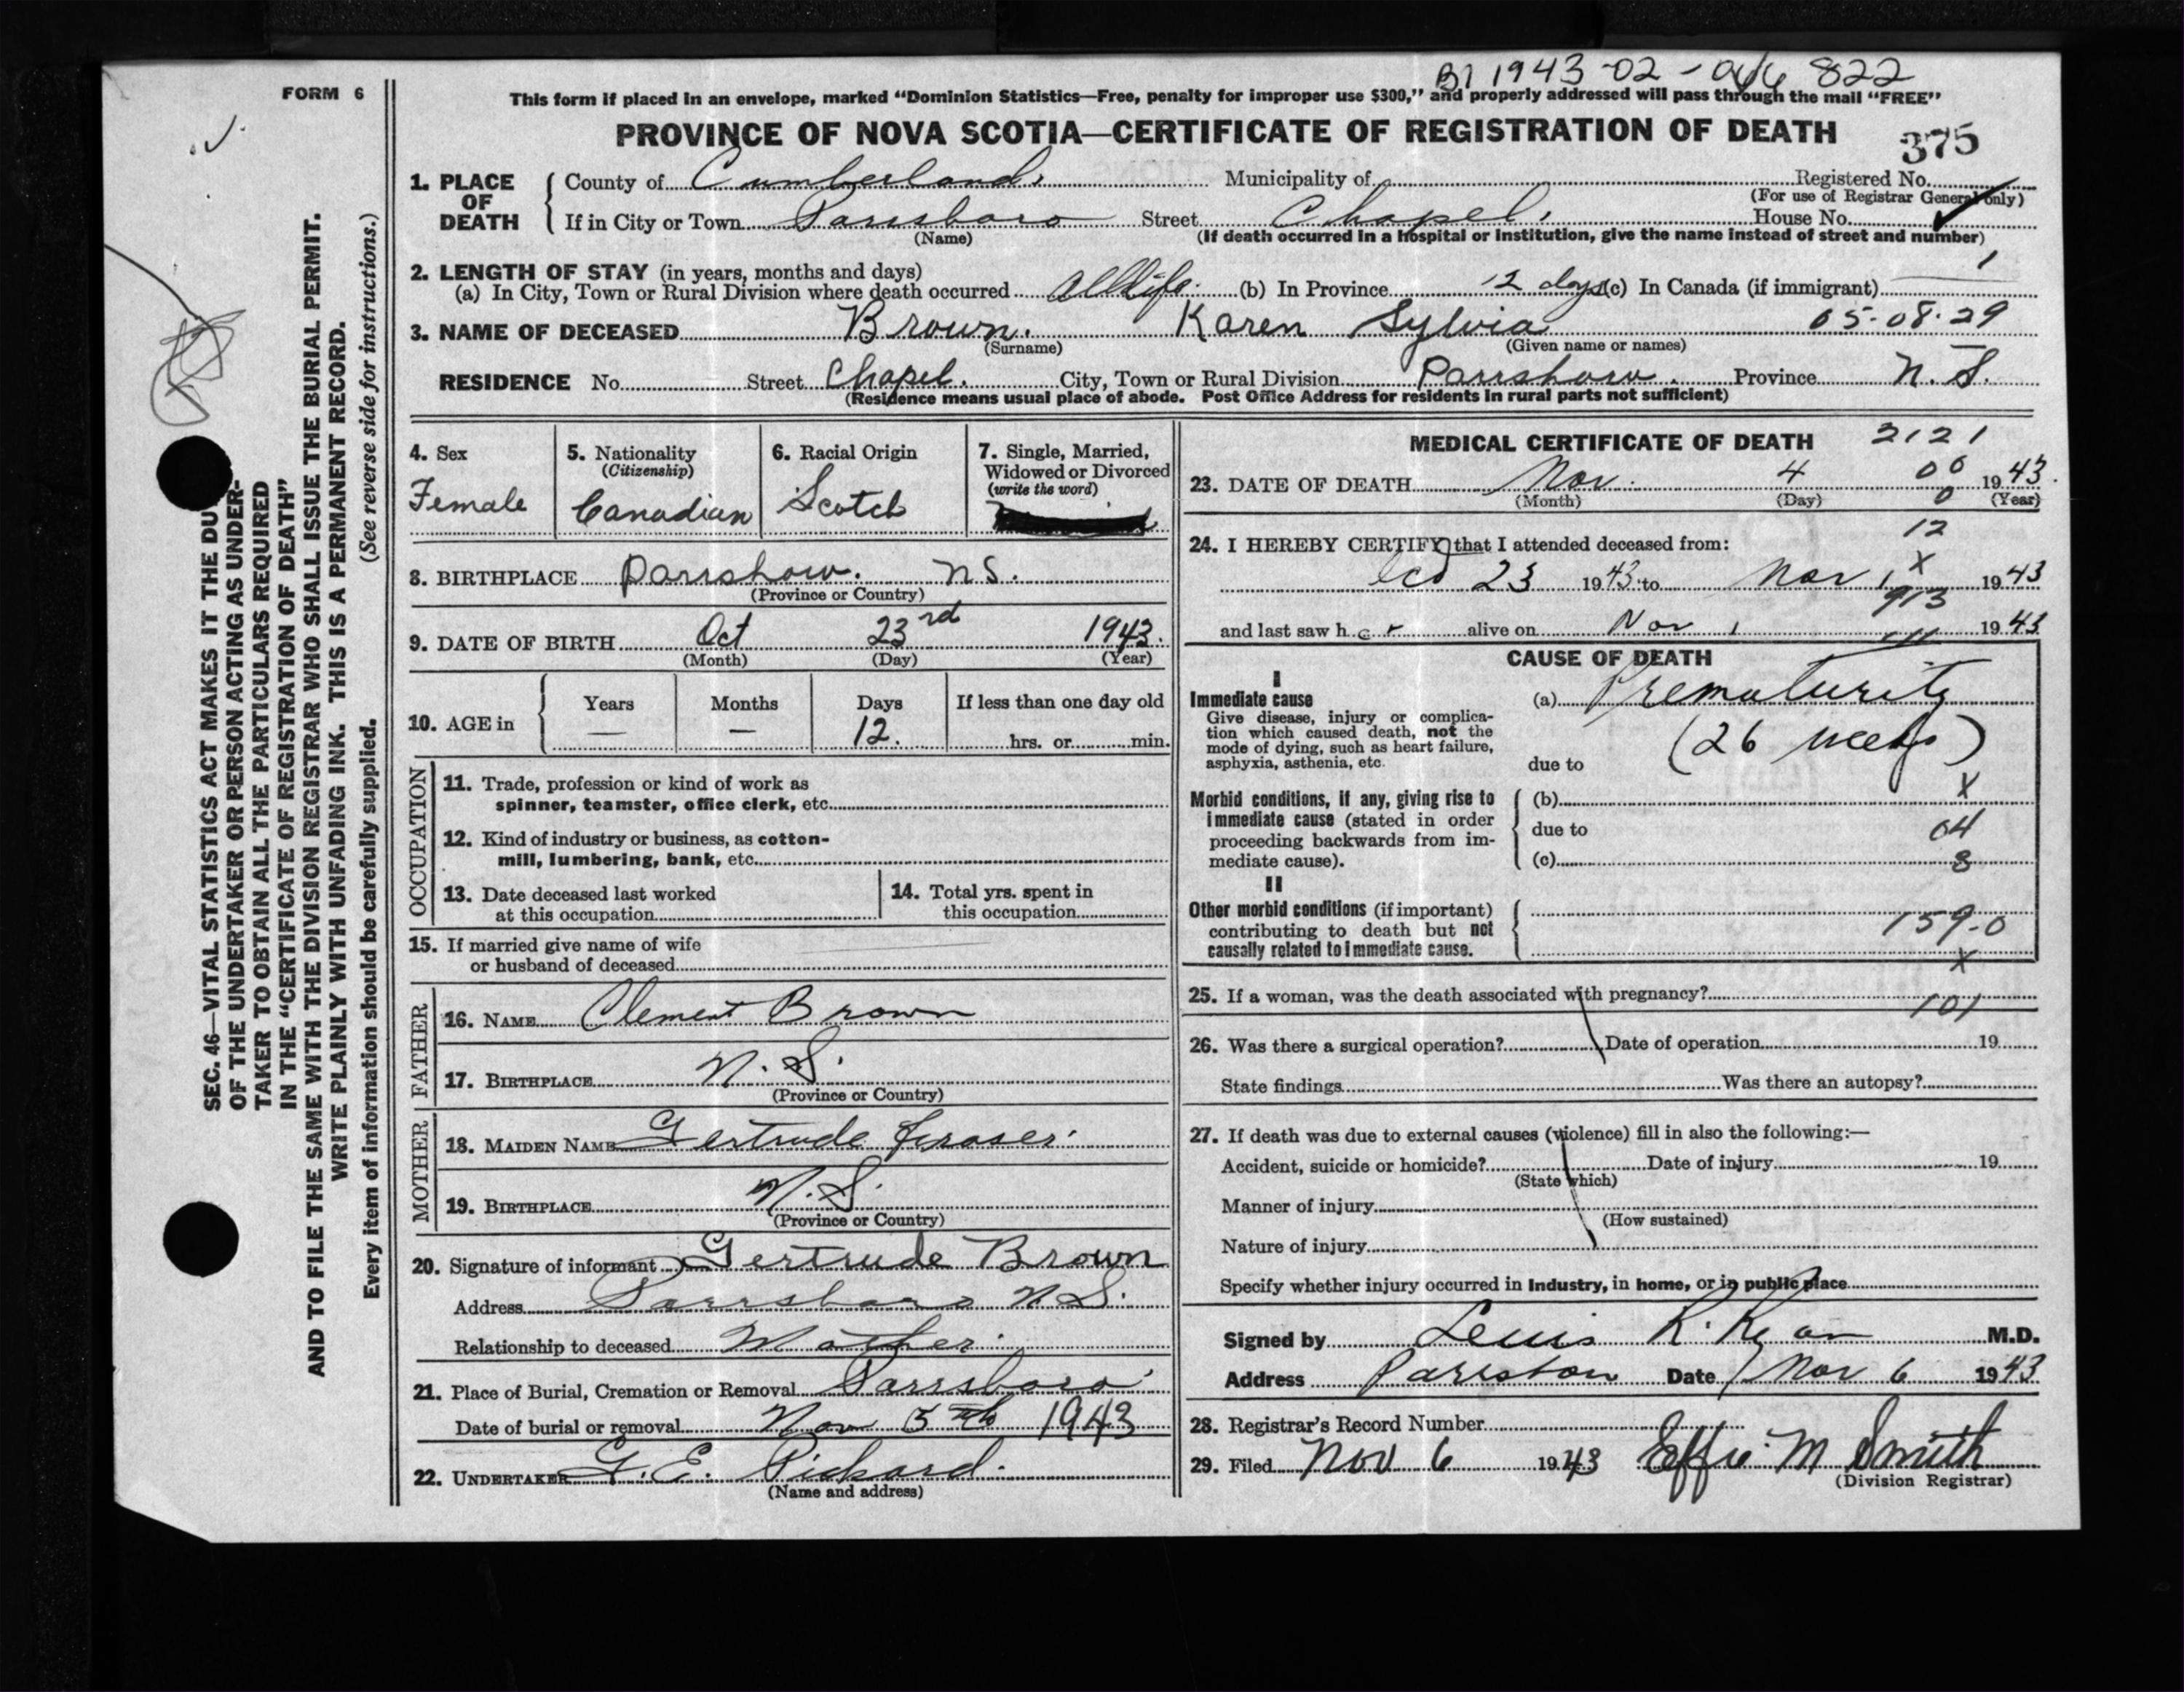 B1 1943-02-066822
FORM 6
This form if placed in an envelope, marked "Dominion Statistics—Free, penalty for improper use $300," and properly addressed will pass through the mail "FREE"
PROVINCE OF NOVA SCOTIA—CERTIFICATE OF REGISTRATION OF DEATH
375
1. PLACE OF DEATH
County of Cumberland. Municipality of Registered No.
(For use of Registrar General only)
If in City or Town Parrsboro Street Chapel. House No.
(Name) (If death occurred in a hospital or institution, give the name instead of street and number)
2. LENGTH OF STAY (in years, months and days) 1
(a) In City, Town or Rural Division where death occurred All Life. (b) In Province 12 days (c) In Canada (if immigrant)
3. NAME OF DECEASED Brown. Karen Sylvia 05-08-29
(Surname) (Given name or names)
RESIDENCE No. Street Chapel. City, Town or Rural Division Parrsboro. Province N.S.
(Residence means usual place of abode. Post Office Address for residents in rural parts not sufficient)
4. Sex
Female
5. Nationality
(Citizenship)
Canadian
6. Racial Origin
Scotch
7. Single, Married,
Widowed or Divorced
(write the word)
8. BIRTHPLACE Parrsboro. N.S.
(Province or Country)
9. DATE OF BIRTH Oct 23rd 1943.
(Month) (Day) (Year)
10. AGE in
Years Months Days If less than one day old
— — 12. hrs. or min.
OCCUPATION
11. Trade, profession or kind of work as
spinner, teamster, office clerk, etc.
12. Kind of industry or business, as cotton-
mill, lumbering, bank, etc.
13. Date deceased last worked
at this occupation
14. Total yrs. spent in
this occupation
15. If married give name of wife
or husband of deceased
FATHER
16. NAME Clement Brown
17. BIRTHPLACE N.S.
(Province or Country)
MOTHER
18. MAIDEN NAME Gertrude Fraser
19. BIRTHPLACE N.S.
(Province or Country)
20. Signature of informant Gertrude Brown
Address Parrsboro N.S.
Relationship to deceased Mother
21. Place of Burial, Cremation or Removal Parrsboro
Date of burial or removal Nov 5th 1943
22. UNDERTAKER G. E. Pickard.
(Name and address)
MEDICAL CERTIFICATE OF DEATH 2121
23. DATE OF DEATH Nov. 4 00 1943.
(Month) (Day) 0 (Year)
12
24. I HEREBY CERTIFY that I attended deceased from:
Oct 23 1943 to Nov 1 X 1943
913
and last saw her alive on Nov 1 1943
111
CAUSE OF DEATH
I
Immediate cause
Give disease, injury or complica-
tion which caused death, not the
mode of dying, such as heart failure,
asphyxia, asthenia, etc.
(a) Prematurity
(26 weeks)
due to
X
Morbid conditions, if any, giving rise to
immediate cause (stated in order
proceeding backwards from im-
mediate cause).
(b)
due to 04
(c) 8
II
Other morbid conditions (if important)
contributing to death but not
causally related to immediate cause.
159-0
X
25. If a woman, was the death associated with pregnancy?
101
26. Was there a surgical operation? Date of operation 19
State findings Was there an autopsy?
27. If death was due to external causes (violence) fill in also the following:—
Accident, suicide or homicide? Date of injury 19
(State which)
Manner of injury
(How sustained)
Nature of injury
Specify whether injury occurred in Industry, in home, or in public place
Signed by R. Ryan M.D.
Address Date Nov 6 1943
28. Registrar's Record Number
29. Filed Nov 6 1943 Effie M Smith
(Division Registrar)
SEC. 46—VITAL STATISTICS ACT MAKES IT THE DU
OF THE UNDERTAKER OR PERSON ACTING AS UNDER-
TAKER TO OBTAIN ALL THE PARTICULARS REQUIRED
IN THE "CERTIFICATE OF REGISTRATION OF DEATH"
AND TO FILE THE SAME WITH THE DIVISION REGISTRAR WHO SHALL ISSUE THE BURIAL PERMIT.
WRITE PLAINLY WITH UNFADING INK. THIS IS A PERMANENT RECORD.
Every item of information should be carefully supplied. (See reverse side for instructions.)